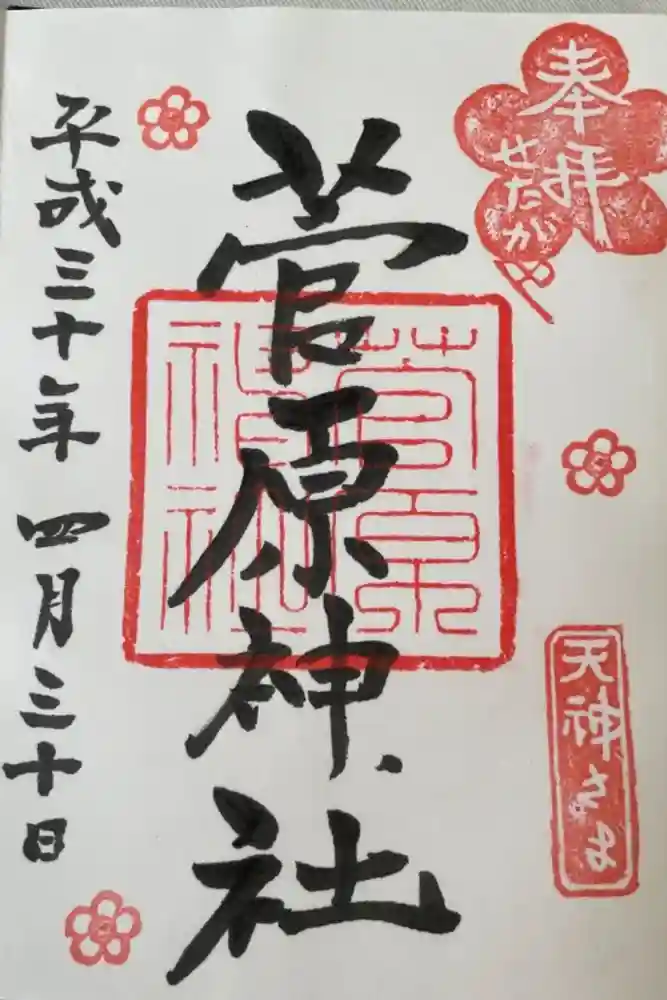 奉拝
せたがや
天神さま
菅原神社
菅原
神社
平成三十年四月三十日